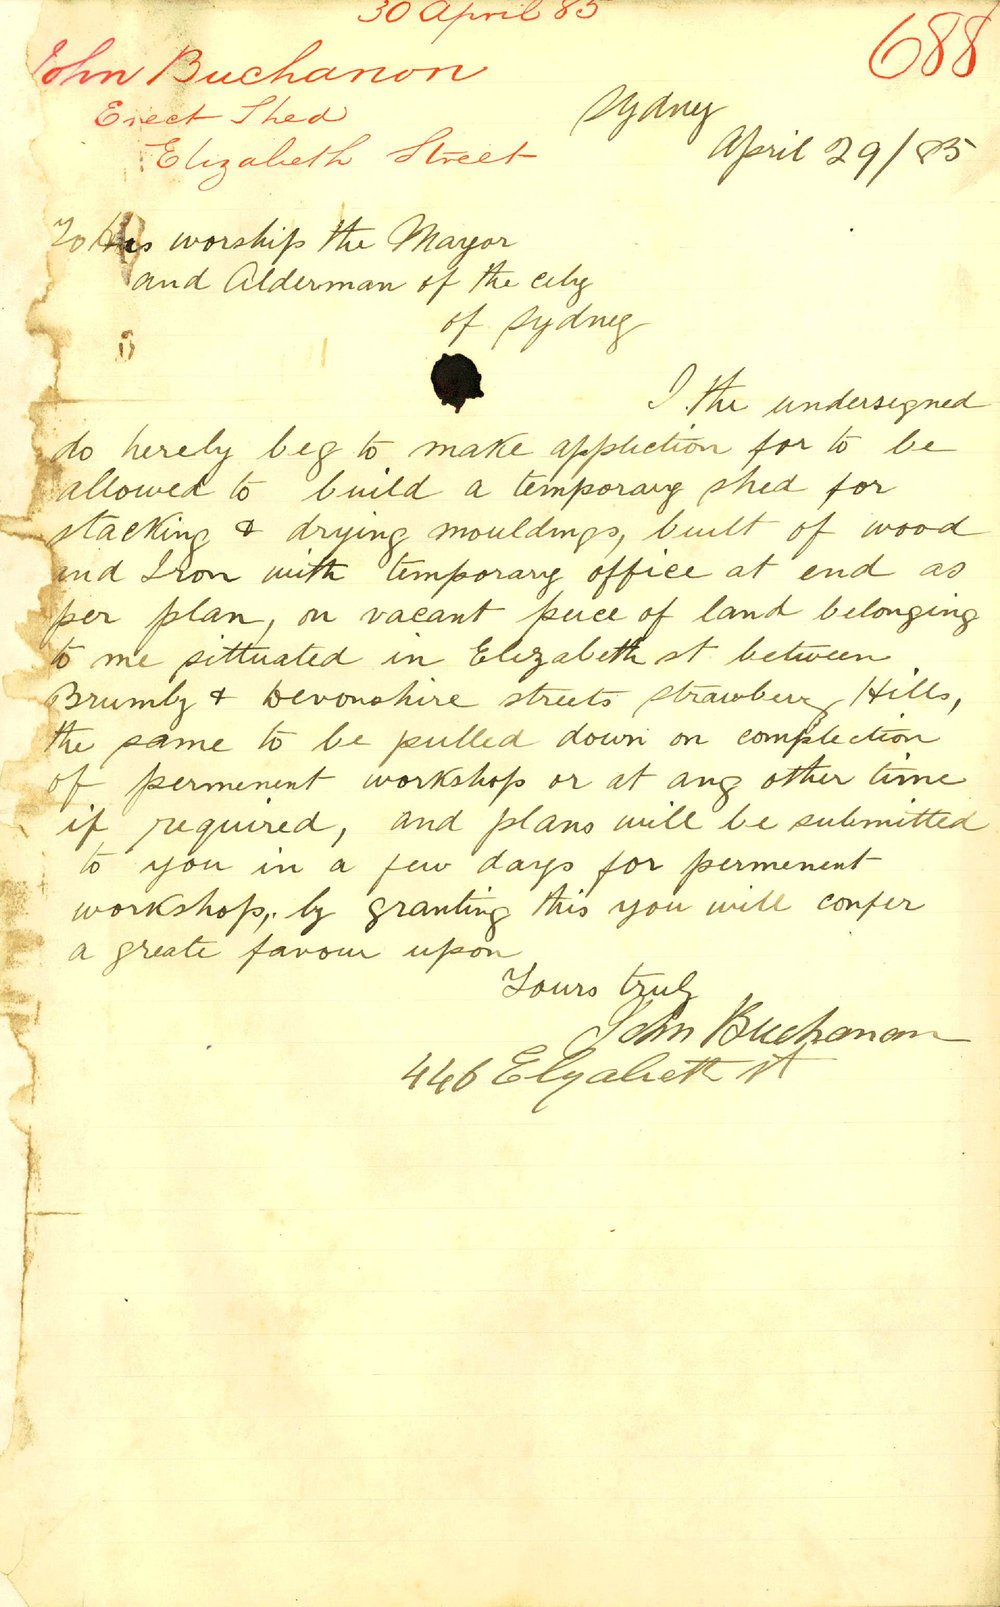 30 April 85
688
John Buchanon
Erect Shed
Elizabeth Street
Sydney
April 29/85
To His worship the Mayor
and Alderman of the city
of Sydney
I the undersigned
do herely beg to make appliction for to be
allowed to build a temporary shed for
stacking & drying mouldings, built of wood
and Iron with temporary office at end as
per plan, on vacant peice of land belonging
to me sittuated in Elizabeth st between
Brumby & Devonshire streets Strawbery Hills,
the same to be pulled down on complection
of permenent workshop or at any other time
if required, and plans will be submitted
to you in a few days for permenent
workshop, by granting this you will confer
a greate favour upon
Yours truly
John Buchanan
446 Elizabeth st